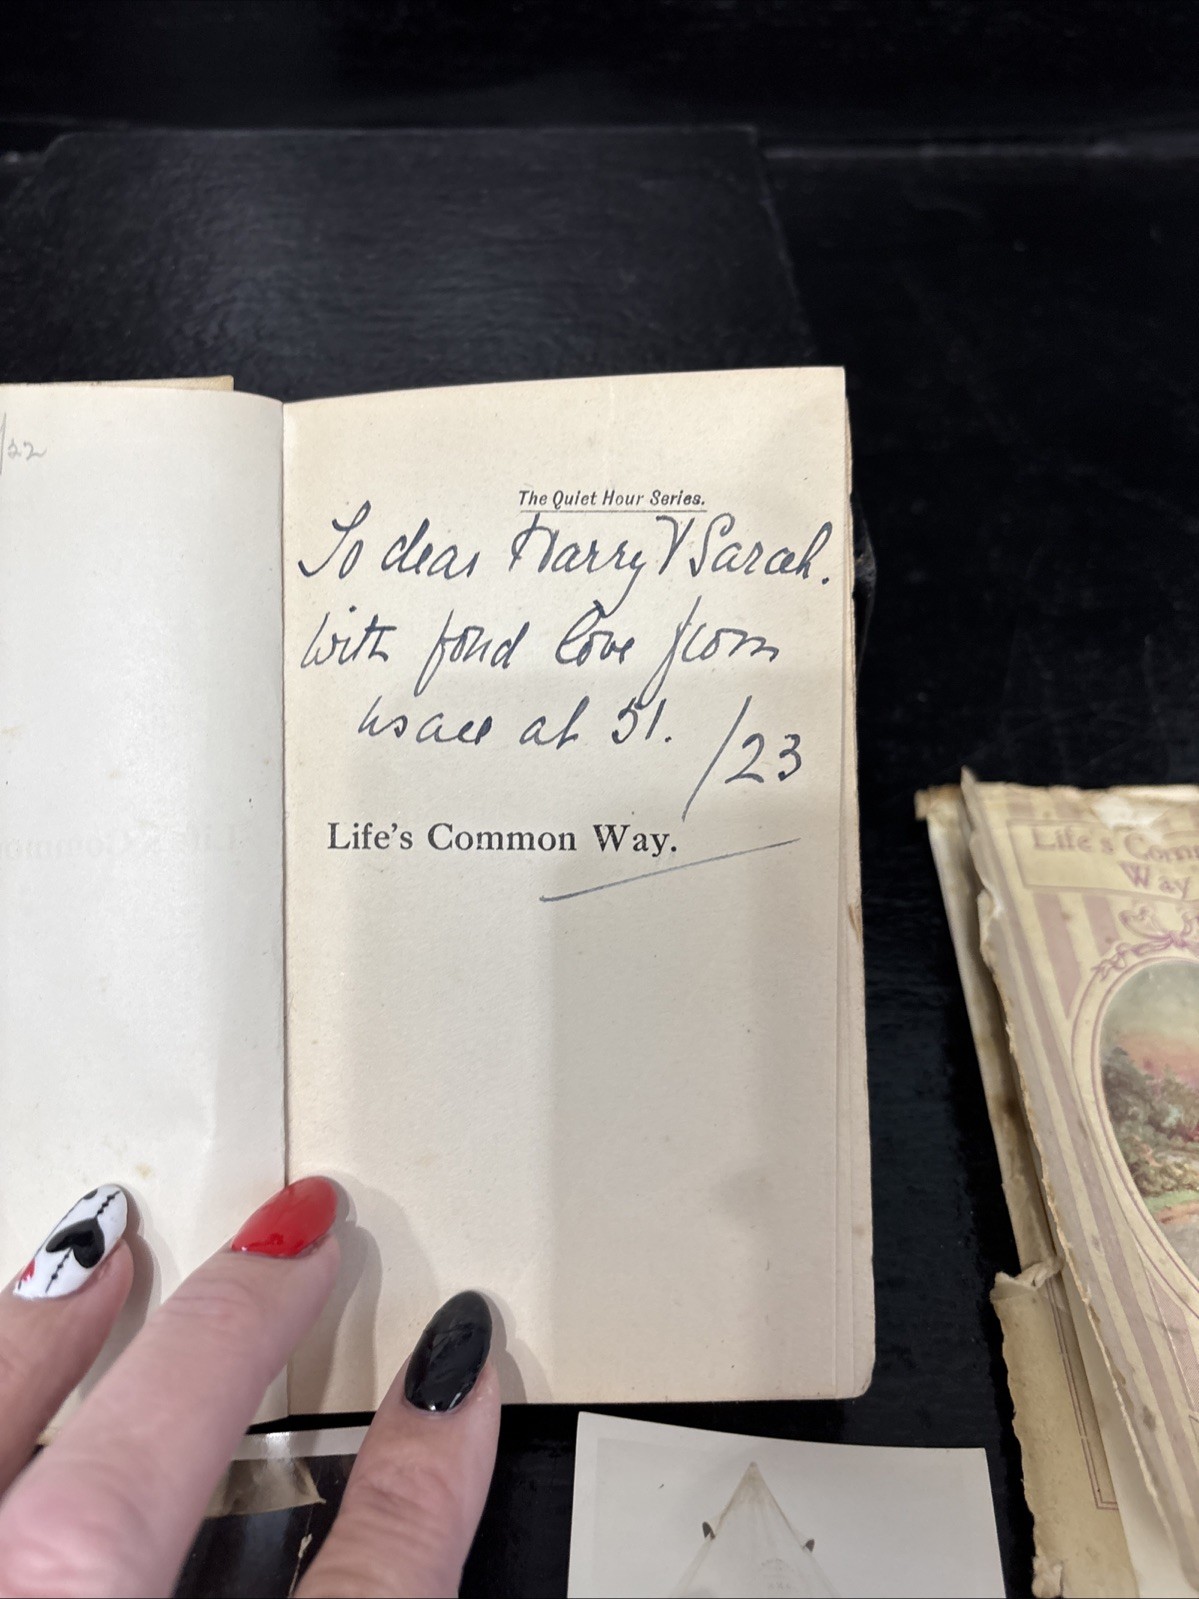 /22
The Quiet Hour Series.
To dear Harry & Sarah.
With fond love from
us all at 51.
/23
Life's Common Way.
Life's Com
Way